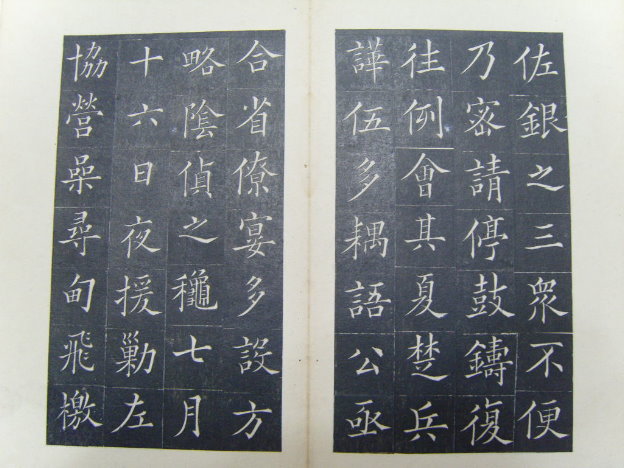 佐銀之三衆不便
乃密請停鼓鑄復
徃例會其夏楚兵
譁伍多耦語公亟
合省僚宴多設方
略陰偵之龝七月
十六日夜援勦左
協營喿尋甸飛檄